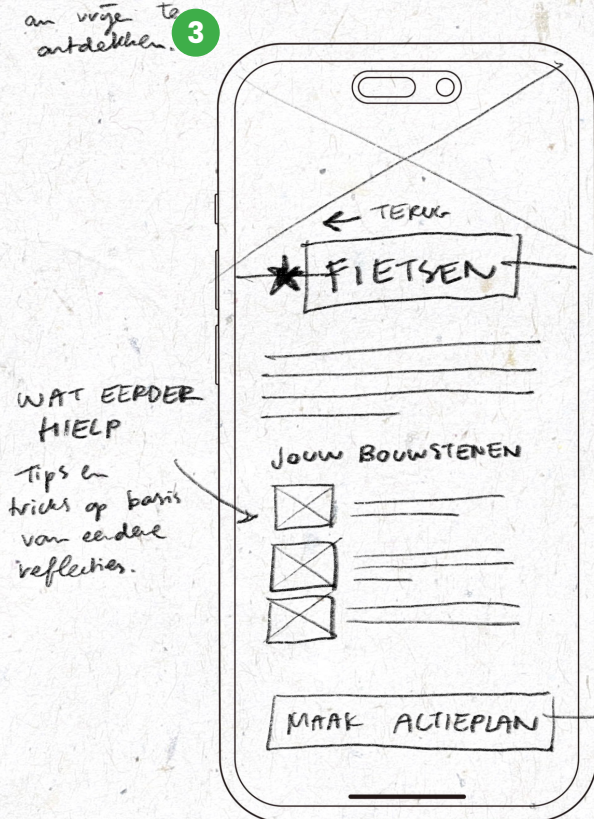 an vrije te
ontdekken.
3
← TERUG
★ FIETSEN
WAT EERDER
HIELP
Tips en
tricks op basis
van eerdere
reflecties.
JOUW BOUWSTENEN
MAAK ACTIEPLAN